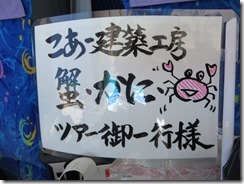 こあ建築工房
蟹・かに
ツアー御一行様